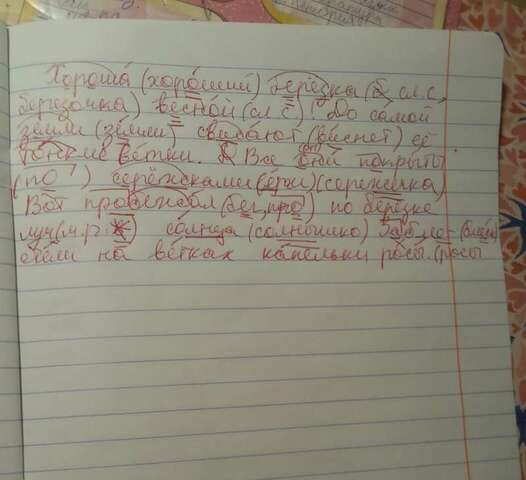 Хороша (хороший) берёзка (Б сл.с,
берёзонька) весной (сл с). До самой
земли (земли) свисают (виснет) её
тонкие ветки. Все они покрыты
(по) серёжками (ёжи) (сережечка)
Вот пробежал (бег, про) по берёзке
луч (м.р. ) солнца (солнышко) Забле-
стели на ветках капельки росы. (росы